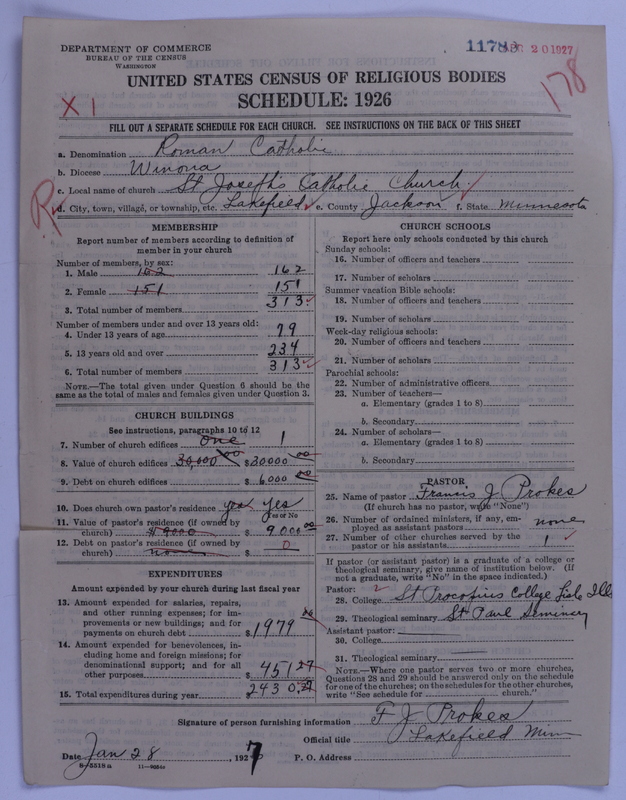 DEPARTMENT OF COMMERCE
BUREAU OF THE CENSUS
WASHINGTON
20 1927
178
X 1
UNITED STATES CENSUS OF RELIGIOUS BODIES
SCHEDULE: 1926
FILL OUT A SEPARATE SCHEDULE FOR EACH CHURCH. SEE INSTRUCTIONS ON THE BACK OF THIS SHEET
a. Denomination Roman Catholic
b. Diocese Winona
c. Local name of church St Joseph's Catholic Church
d. City, town, village, or township, etc. Lakefield e. County Jackson f. State Minnesota
MEMBERSHIP
Report number of members according to definition of
member in your church
Number of members, by sex:
1. Male 162 162
2. Female 151 151
3. Total number of members 313
Number of members under and over 13 years old:
4. Under 13 years of age 79
5. 13 years old and over 234
6. Total number of members 313
NOTE.—The total given under Question 6 should be the
same as the total of males and females given under Question 3.
CHURCH BUILDINGS
See instructions, paragraphs 10 to 12
7. Number of church edifices one 1
8. Value of church edifices 30,000 00 $30000 00
9. Debt on church edifices $6,000 00
10. Does church own pastor's residence yes yes
Yes or No
11. Value of pastor's residence (if owned by
church) $9000 $9000 00
12. Debt on pastor's residence (if owned by
church) none $0
EXPENDITURES
Amount expended by your church during last fiscal year
13. Amount expended for salaries, repairs,
and other running expenses; for im-
provements or new buildings; and for
payments on church debt $1979
14. Amount expended for benevolences, in-
cluding home and foreign missions; for
denominational support; and for all
other purposes $451 27
15. Total expenditures during year 2430.27
CHURCH SCHOOLS
Report here only schools conducted by this church
Sunday schools:
16. Number of officers and teachers
17. Number of scholars
Summer vacation Bible schools:
18. Number of officers and teachers
19. Number of scholars
Week-day religious schools:
20. Number of officers and teachers
21. Number of scholars
Parochial schools:
22. Number of administrative officers
23. Number of teachers—
a. Elementary (grades 1 to 8)
b. Secondary
24. Number of scholars—
a. Elementary (grades 1 to 8)
b. Secondary
PASTOR
25. Name of pastor Francis J Prokes
(If church has no pastor, write "None")
26. Number of ordained ministers, if any, em-
ployed as assistant pastors none
27. Number of other churches served by the
pastor or his assistants 1
If pastor (or assistant pastor) is a graduate of a college or
theological seminary, give name of institution below. (If
not a graduate, write "No" in the space indicated.)
Pastor: 2
28. College St Procopius College Lisle Ill
29. Theological seminary St Paul Seminary
Assistant pastor:
30. College
31. Theological seminary
NOTE.—Where one pastor serves two or more churches,
Questions 28 and 29 should be answered only on the schedule
for one of the churches; on the schedules for the other churches,
write "See schedule for church."
Signature of person furnishing information F J Prokes
Official title
Date Jan 28, 1927 P. O. Address Lakefield Minn